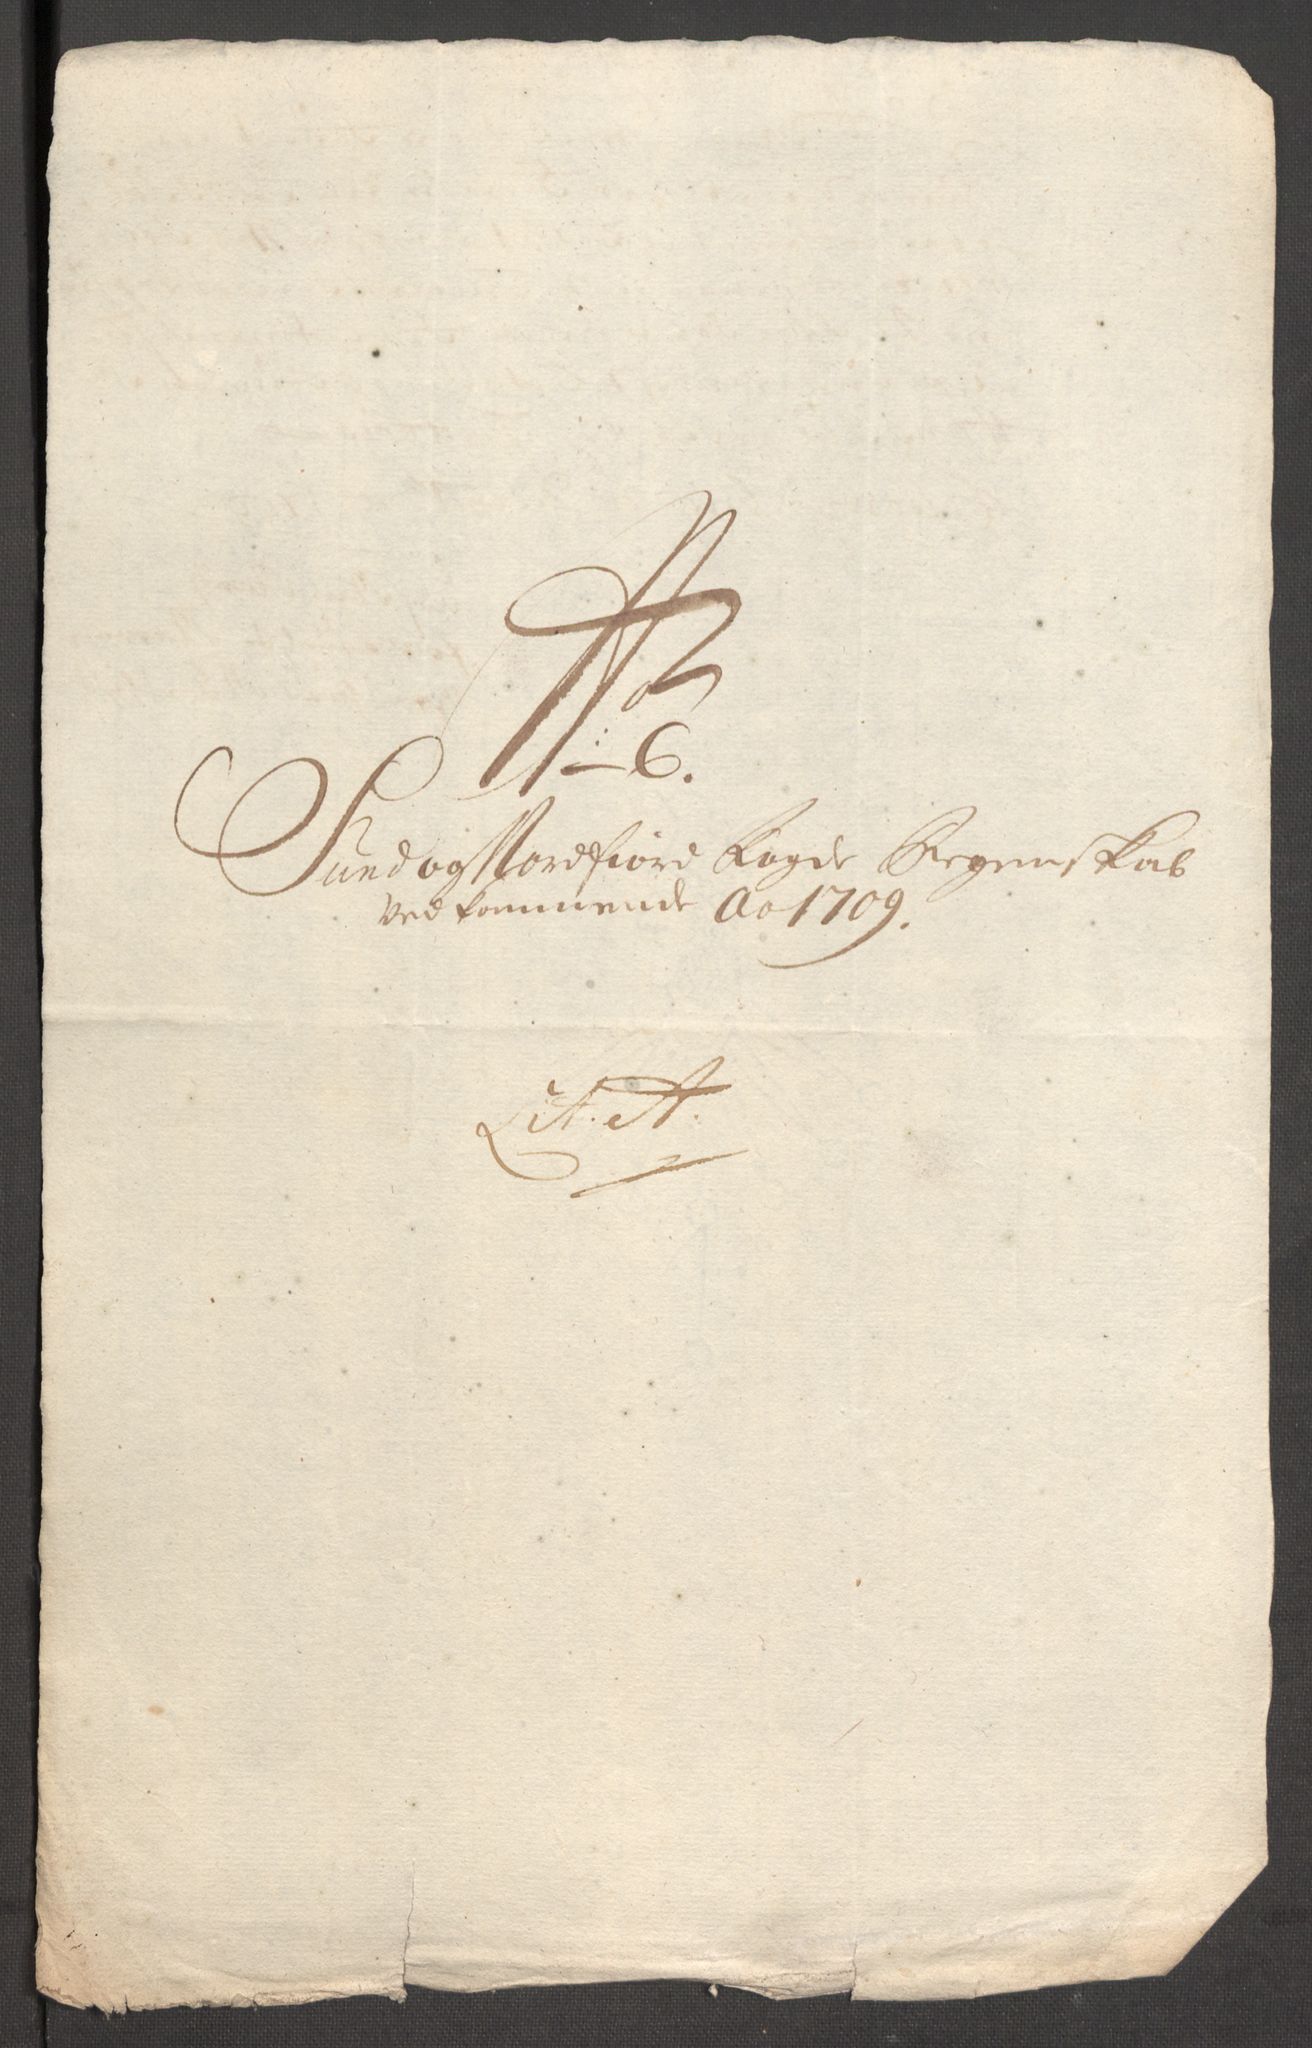 No
6.
Sund og Nordfiord Fogde Regenskab
Vedkommende Ao 1709.
Lit. A.